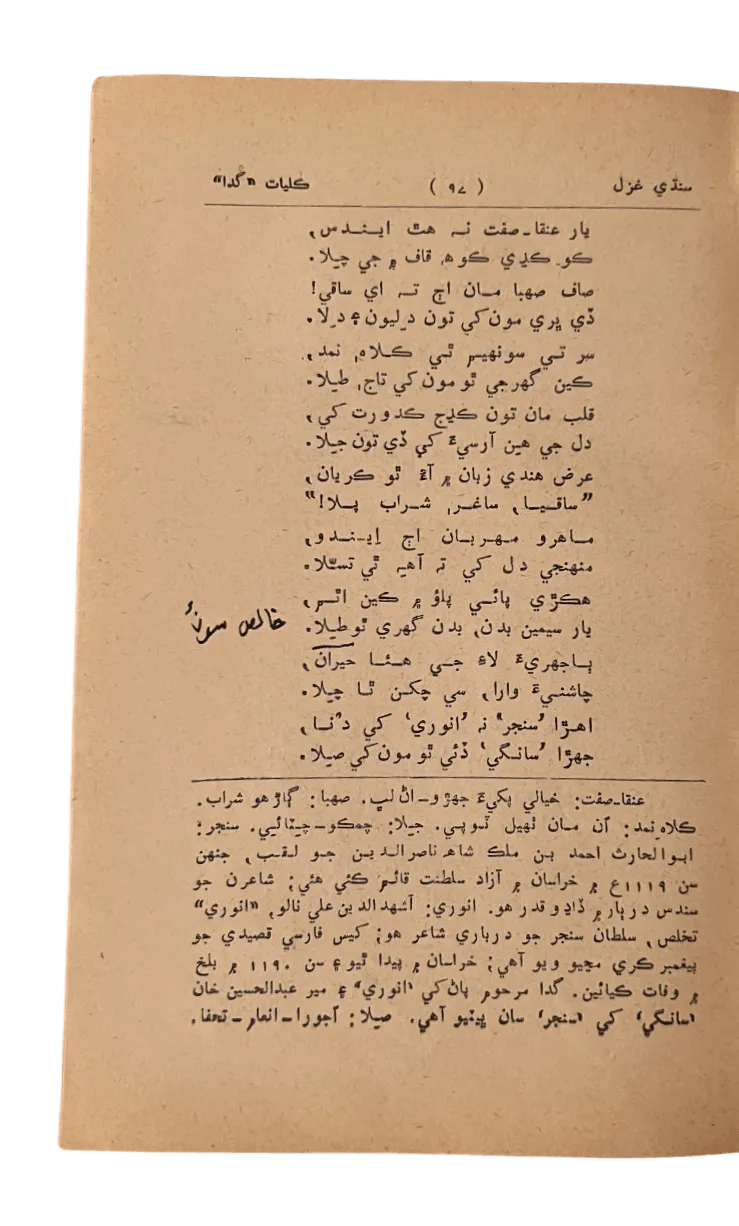 سنڌي غزل ( ۹۷ ) ڪليات ”گدا“
يار عنقا-صفت نہ هٿ ايندس،
ڪو ڪڍي ڪوهہ قاف ۾ جي چيلا.
صاف صهبا مان اڄ تہ اي ساقي!
ڏي ڀري مون کي تون دليون ۽ دلا.
سر تي سونهيم ٿي ڪلاہِ نمد،
ڪين گهرجي ٿو مون کي تاجِ طيلا.
قلب مان تون ڪڍج ڪدورت کي،
دل جي هين آرسيءَ کي ڏي تون جيلا.
عرض هندي زبان ۾ آءٌ ٿو ڪريان،
”ساقيا، ساغرِ شراب پيلا!“
ماهرو مهربان اڄ اِيندو،
منهنجي دل کي تہ آهہ ٿي تسّلا.
هڪڙي پائي پلؤ ۾ ڪين اٿم،
يار سيمين بدن، بدن گهري ٿو طيلا.
خالص سونُ
ٻاجهريءَ لاءِ جي هئا حيران،
چاشنيءَ وارا، سي چکن ٿا چيلا.
اهڙا ’سنجر‘ نہ ’انوري‘ کي دنا،
جهڙا ’سانگي‘ ڏئي ٿو مون کي صيلا.
عنقا-صفت: خيالي پکيءَ جهڙو-اڻ لڀ. صهبا: ڳاڙهو شراب.
ڪلاہِ نمد: اُن مان ٺهيل ٽوپي. جيلا: چمڪو-چٽائي. سنجر:
ابوالحارث احمد بن ملڪ شاهہ ناصرالدين جو لقب، جنهن
سن ۱۱۱۹ع ۾ خراسان ۾ آزاد سلطنت قائم ڪئي هئي؛ شاعرن جو
سندس دربار ۾ ڏاڍو قدر هو. انوري: اَشهدالدين علي نالو، ”انوري“
تخلص، سلطان سنجر جو درباري شاعر هو؛ کيس فارسي قصيدي جو
پيغمبر ڪري مڃيو ويو آهي؛ خراسان ۾ پيدا ٿيو ۽ سن ۱۱۹۰ ۾ بلخ
۾ وفات ڪيائين. گدا مرحوم پاڻ کي ’انوري‘ ۽ مير عبدالحسين خان
’سانگي‘ کي ’سنجر‘ سان ڀيٽيو آهي. صيلا: اُجورا-انعام-تحفا.